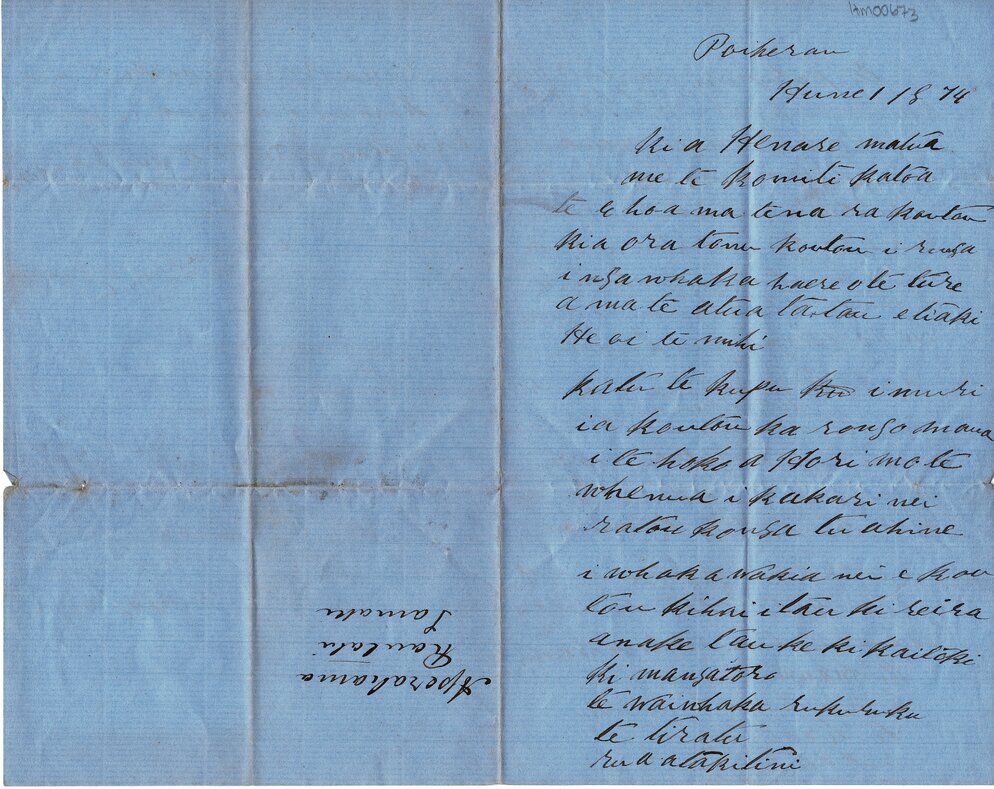 HM00673
Poiherau
Hune 1 1874
Ki a Henare matua
me te Komiti katoa
te E hoa ma tena ra koutou
Kia ora tonu koutou i runga
i nga whaka haere o te ture
a ma te atua tatou e tiaki
He oi te mihi
Katu te kupu i muri
i a koutou ka rongo maua
i te hoko a Hori mo te
whenua i kakari nei
ratou ko nga tuahine
i whaka wakia nei e kou
tou kihai i tau ki reira
anake tau ke ki kaitoki
ki mangatoro
te wainhaka rukuruku
te tiratu
rua atakitini
Aperahama
Rautahi
Tamaku